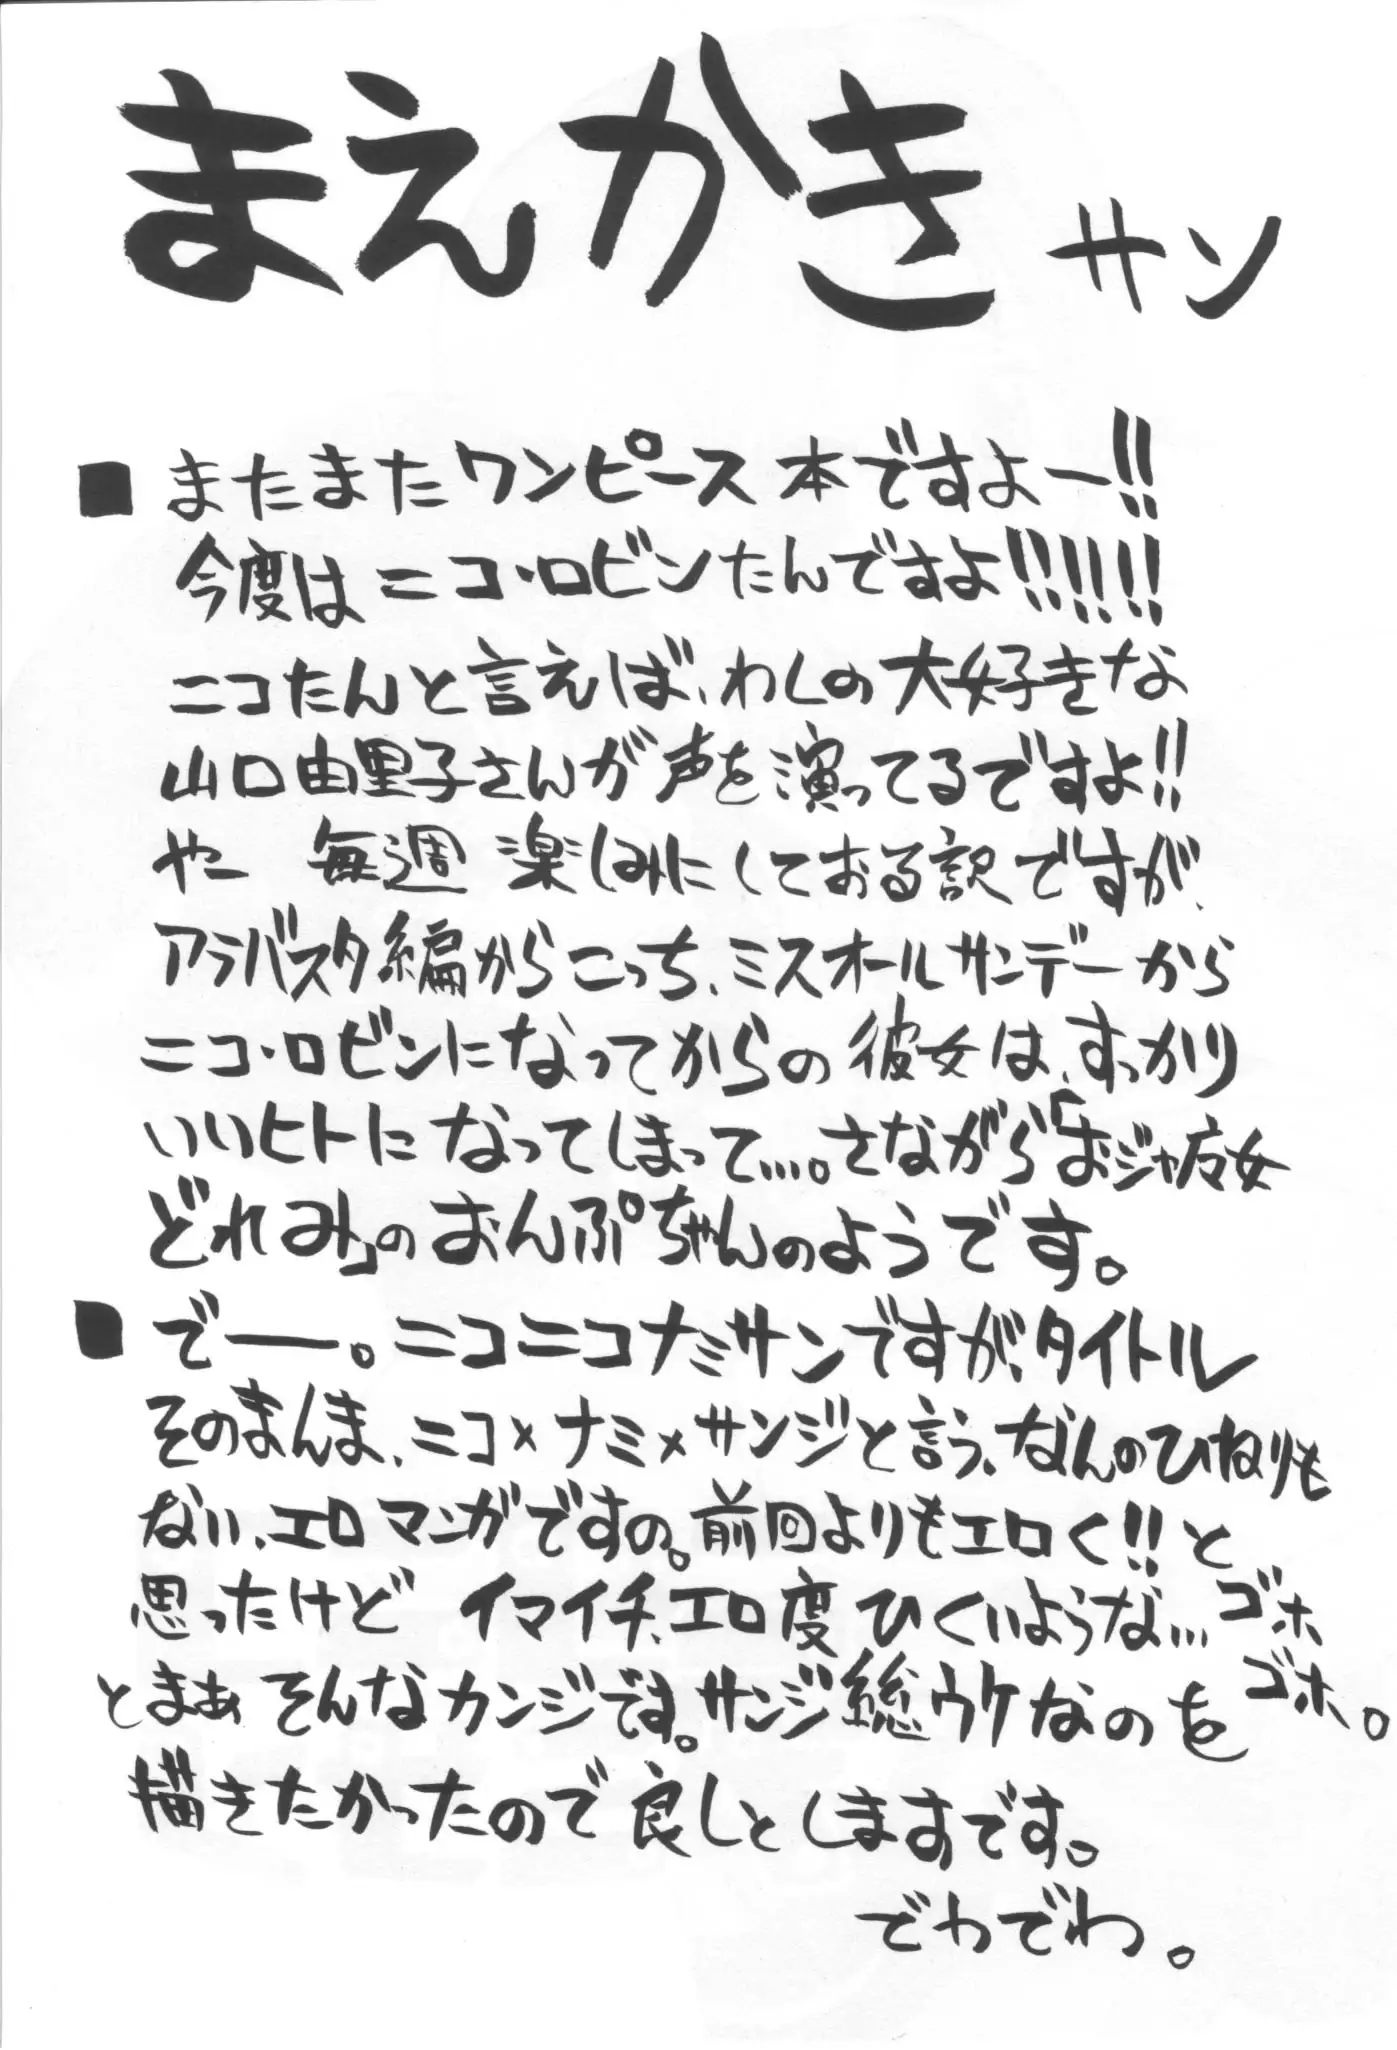 まえかき サン
■ またまたワンピース本ですよー!!
今度はニコ・ロビンたんですよ!!!!!!
ニコたんと言えば、わしの大好きな
山口由里子さんが声を演ってるですよ!!
やー 毎週 楽しみにしておる訳ですが、
アラバスタ編からこっち、ミスオールサンデーから
ニコ・ロビンになってからの彼女は、すっかり
いいヒトになってしまって…。さながら「おジャ魔女
どれみ」のおんぷちゃんのようです。
■ でー。ニコニコナミサンですが、タイトル
そのまんま、ニコ×ナミ×サンジと言う、なんのひねりも
ない、エロマンガですの。前回よりもエロく!!と
思ったけど イマイチ、エロ度ひくいような… ゴホ
ゴホ。
とまぁ そんなカンジです。サンジ総ウケなのを
描きたかったので良しとしますです。
でわでわ。